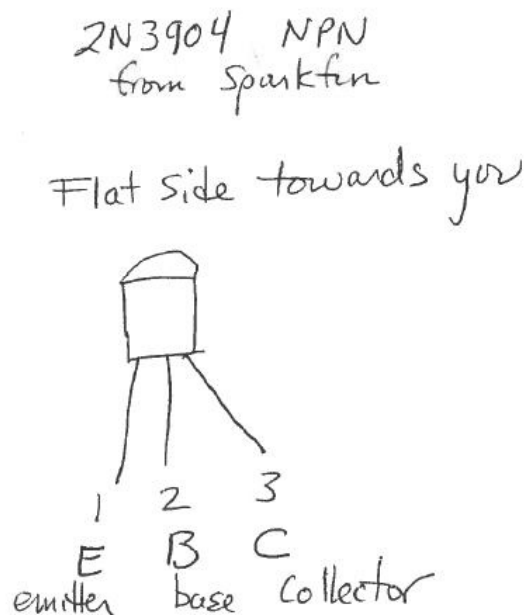 2N3904 NPN
from Sparkfun
Flat Side towards you
1 2 3
E B C
emitter base collector